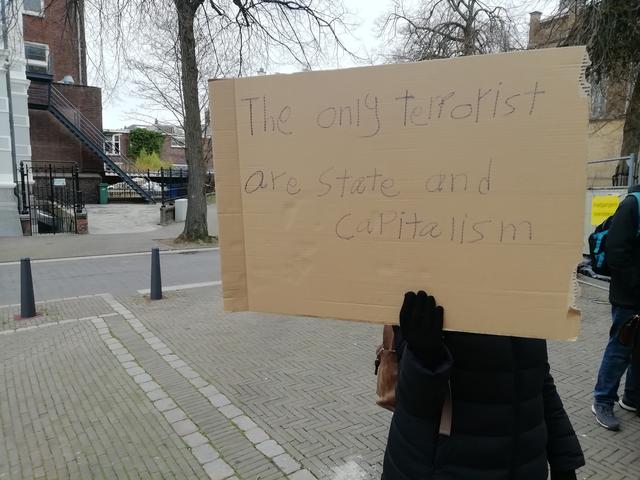 The only terrorist
are state and
capitalism